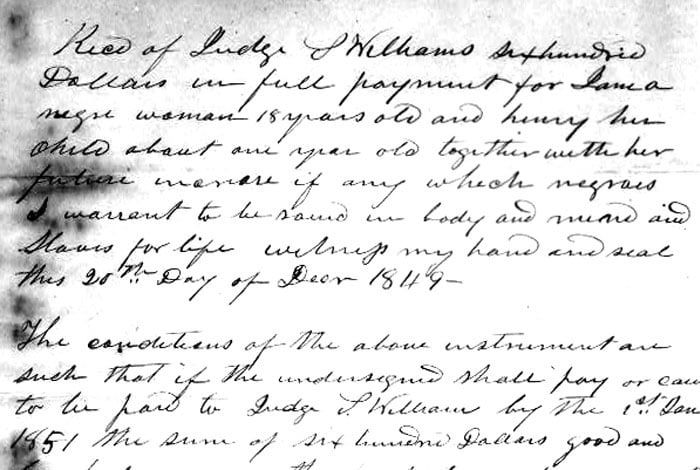 Recd of Judge S Williams six hundred
Dollars in full payment for Jane a
negro woman 18 years old and henry her
Child about one year old together with her
future increase if any which negroes
I warrant to be sound in body and mind and
Slaves for life witness my hand and seal
this 20th Day of Decr 1849 -
The conditions of the above instrument are
such that if the undersigned shall pay or cau
to be paid to Judge S William by the 1st Jan
1851 the sum of six hundred Dollars good and